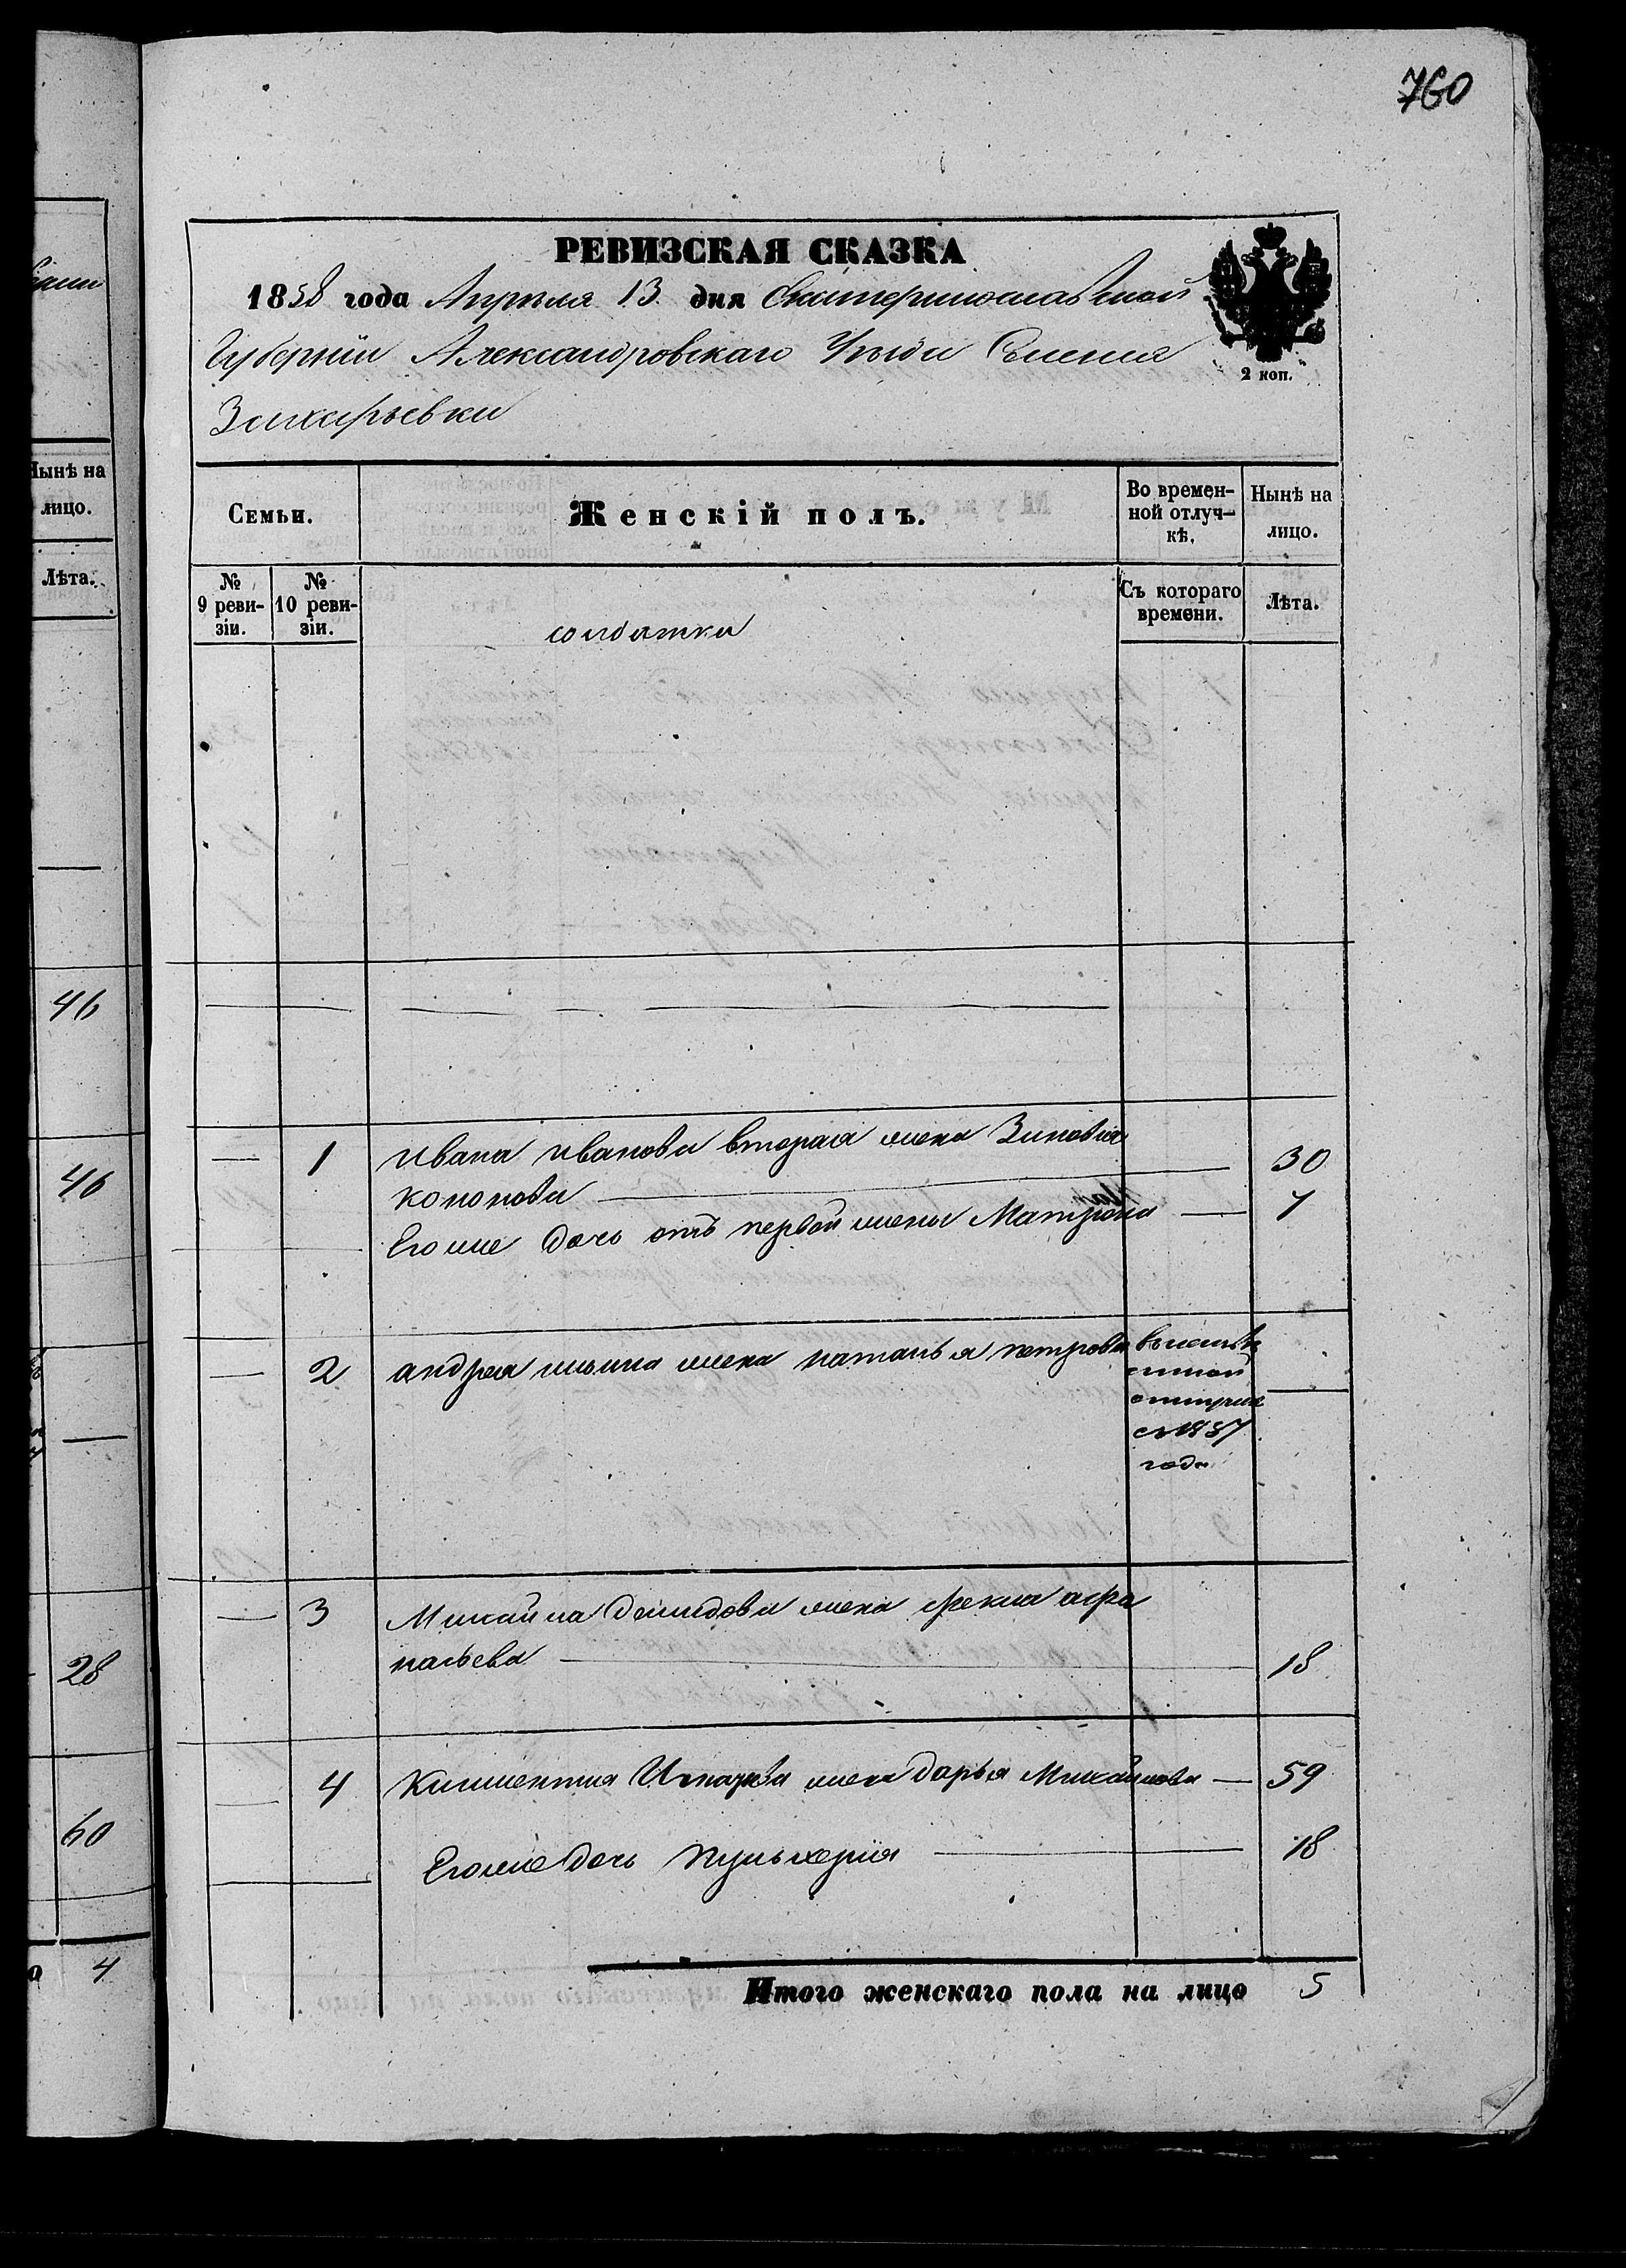 760
РЕВИЗСКАЯ СКАЗКА
1858 года Апреля 13 дня Екатеринославской
Губерніи Александровскаго Уезда Селенія
Захарьевки
2 коп.
Семьи.
Женскій полъ.
Во времен-
ной отлуч-
кѣ.
Нынѣ на
лицо.
№
9 реви-
зіи.
№
10 реви-
зіи.
Съ котораго
времени.
Лѣта.
солдатки
1 Ивана Иванова вторая жена Зиновия
Кононова 30
Его же дочь отъ первой жены Матрона 7
2 андрея жена наталья петрова
отлучке
съ 1857
года
3 Михайла Демидова жена Фекла афа
насьева 18
4 Климентия жена Дарья Михайлова 59
Его же дочь Пульхерія 18
Итого женскаго пола на лицо 5
Нынѣ на
лицо.
Лѣта.
46
46
28
60
4